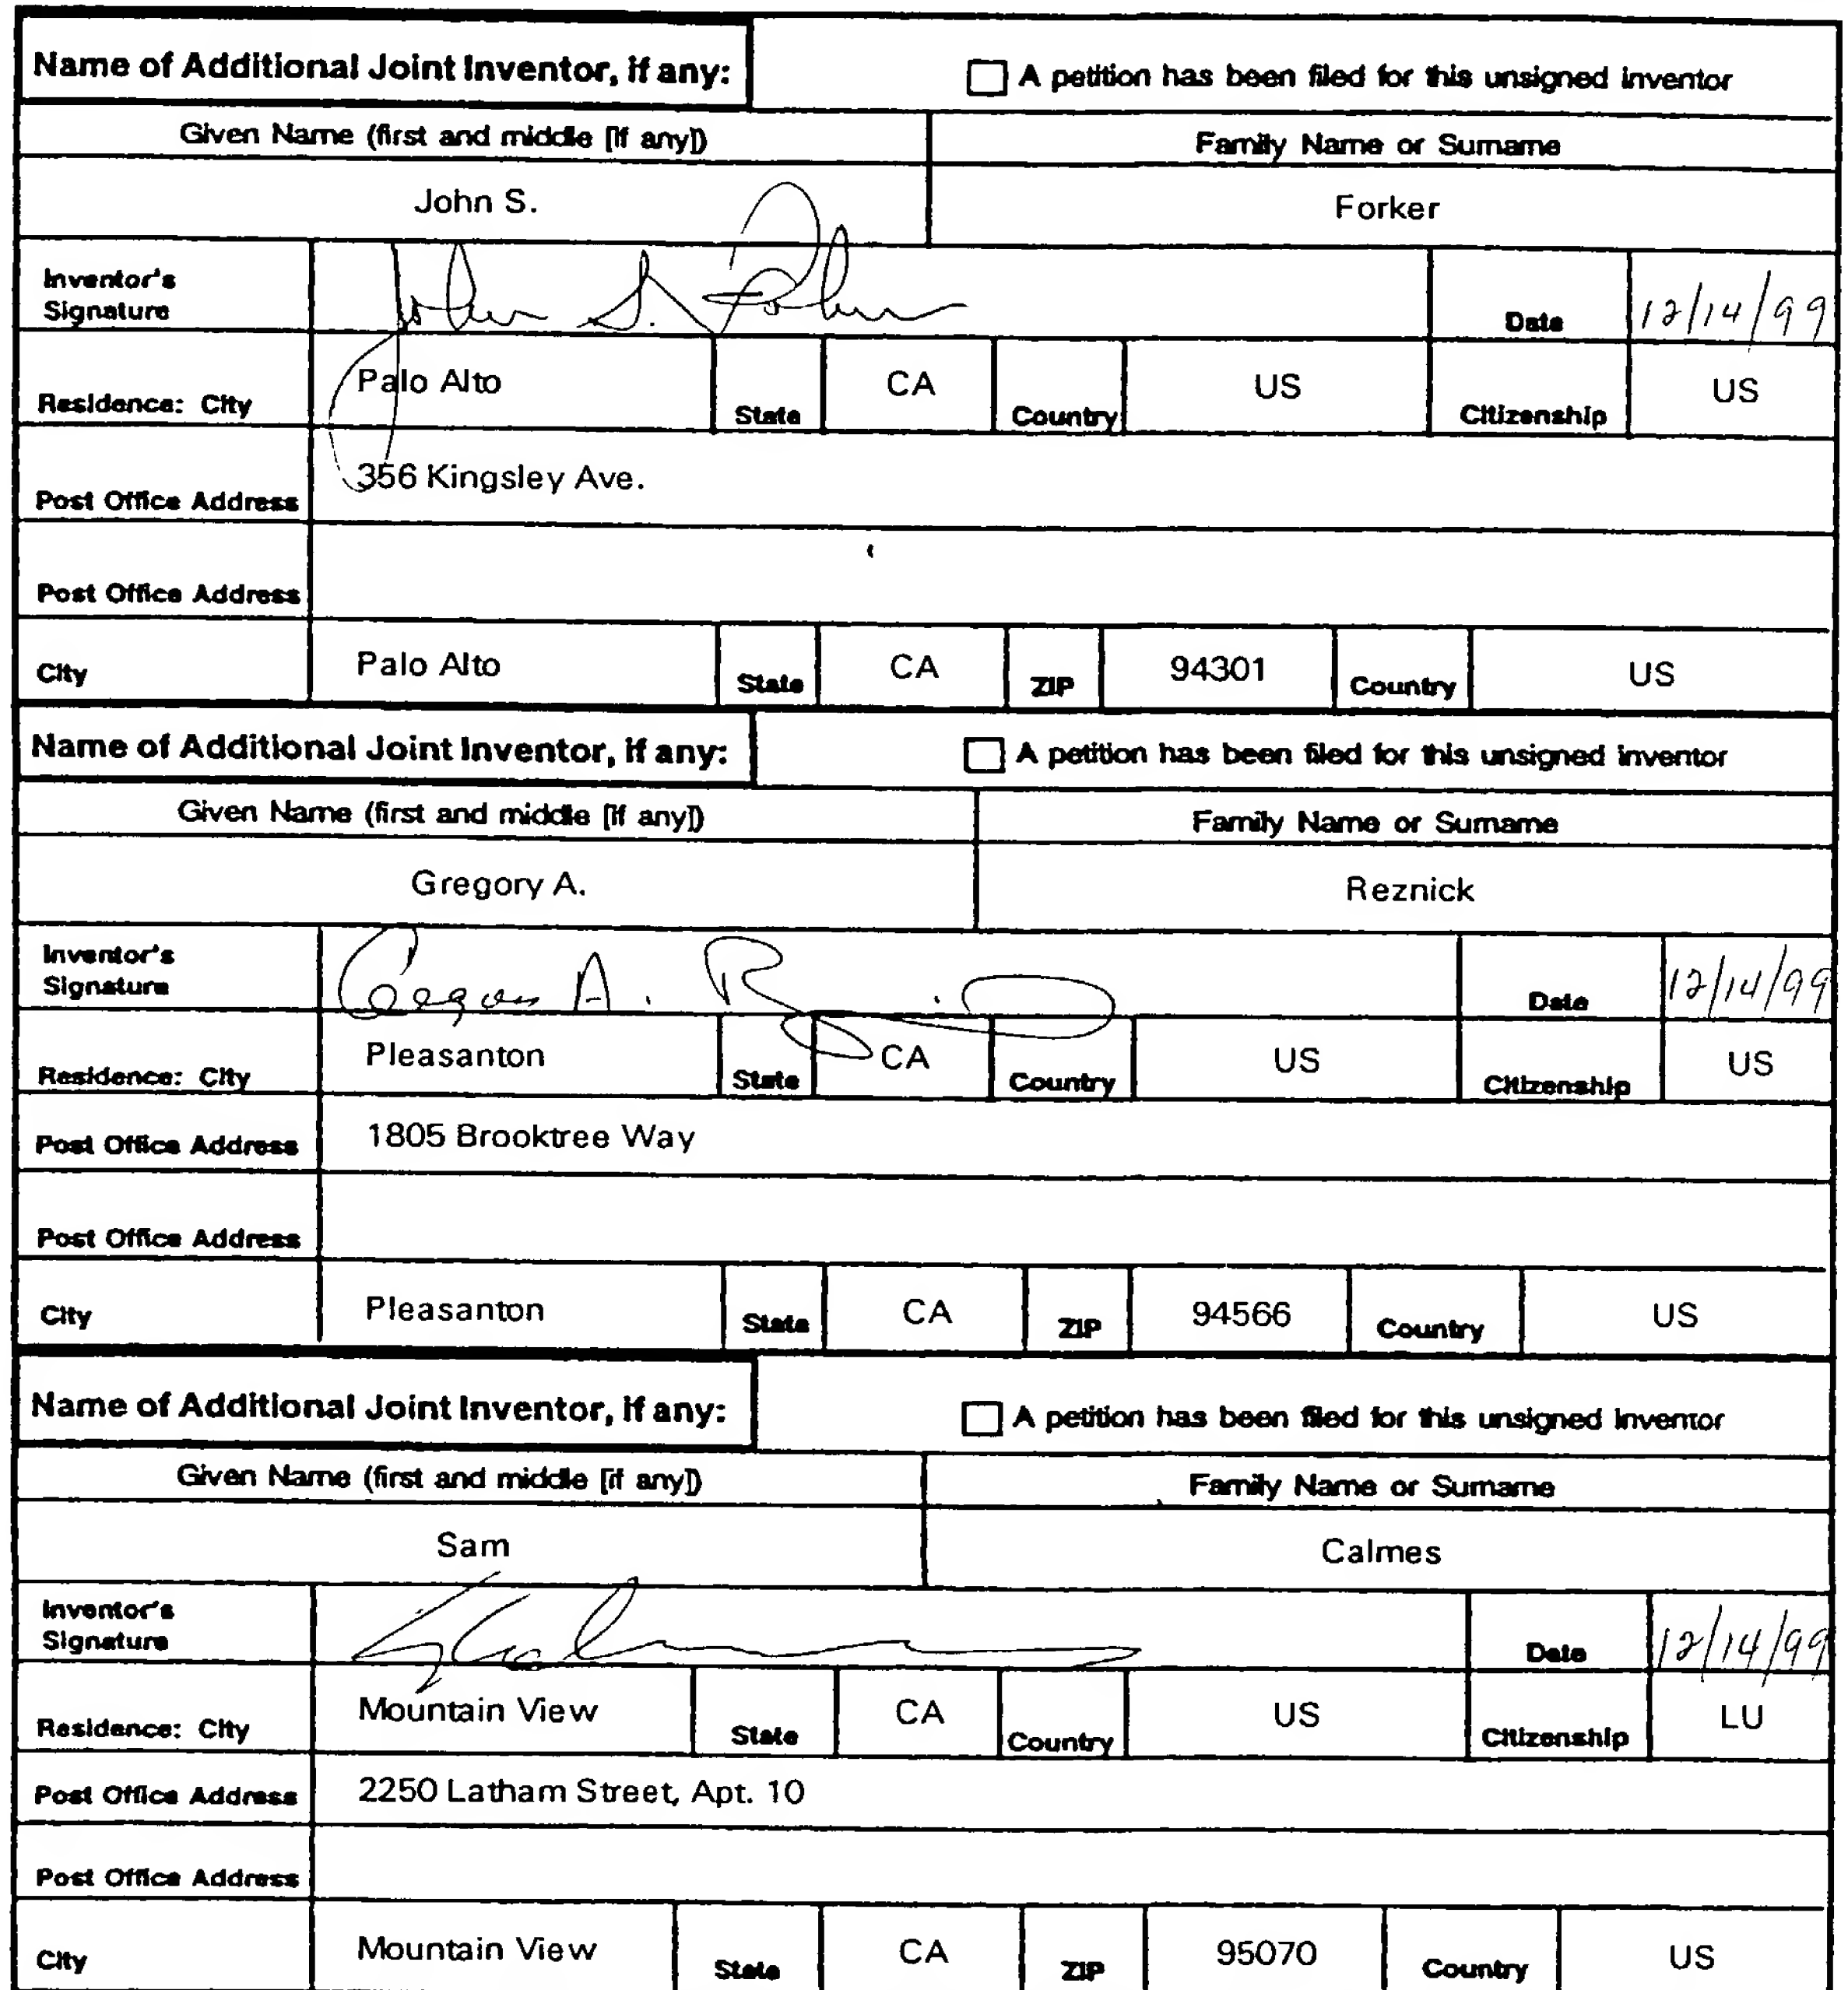 Name of Additional Joint Inventor, if any: A petition has been filed for this unsigned inventor
Given Name (first and middle [if any]) Family Name or Surname
John S. Forker
Inventor's Signature John S. Forker Date 12/14/99
Residence: City Palo Alto State CA Country US Citizenship US
Post Office Address 356 Kingsley Ave.
Post Office Address
City Palo Alto State CA ZIP 94301 Country US
Name of Additional Joint Inventor, if any: A petition has been filed for this unsigned inventor
Given Name (first and middle [if any]) Family Name or Surname
Gregory A. Reznick
Inventor's Signature Date 12/14/99
Residence: City Pleasanton State CA Country US Citizenship US
Post Office Address 1805 Brooktree Way
Post Office Address
City Pleasanton State CA ZIP 94566 Country US
Name of Additional Joint Inventor, if any: A petition has been filed for this unsigned inventor
Given Name (first and middle [if any]) Family Name or Surname
Sam Calmes
Inventor's Signature Date 12/14/99
Residence: City Mountain View State CA Country US Citizenship LU
Post Office Address 2250 Latham Street, Apt. 10
Post Office Address
City Mountain View State CA ZIP 95070 Country US